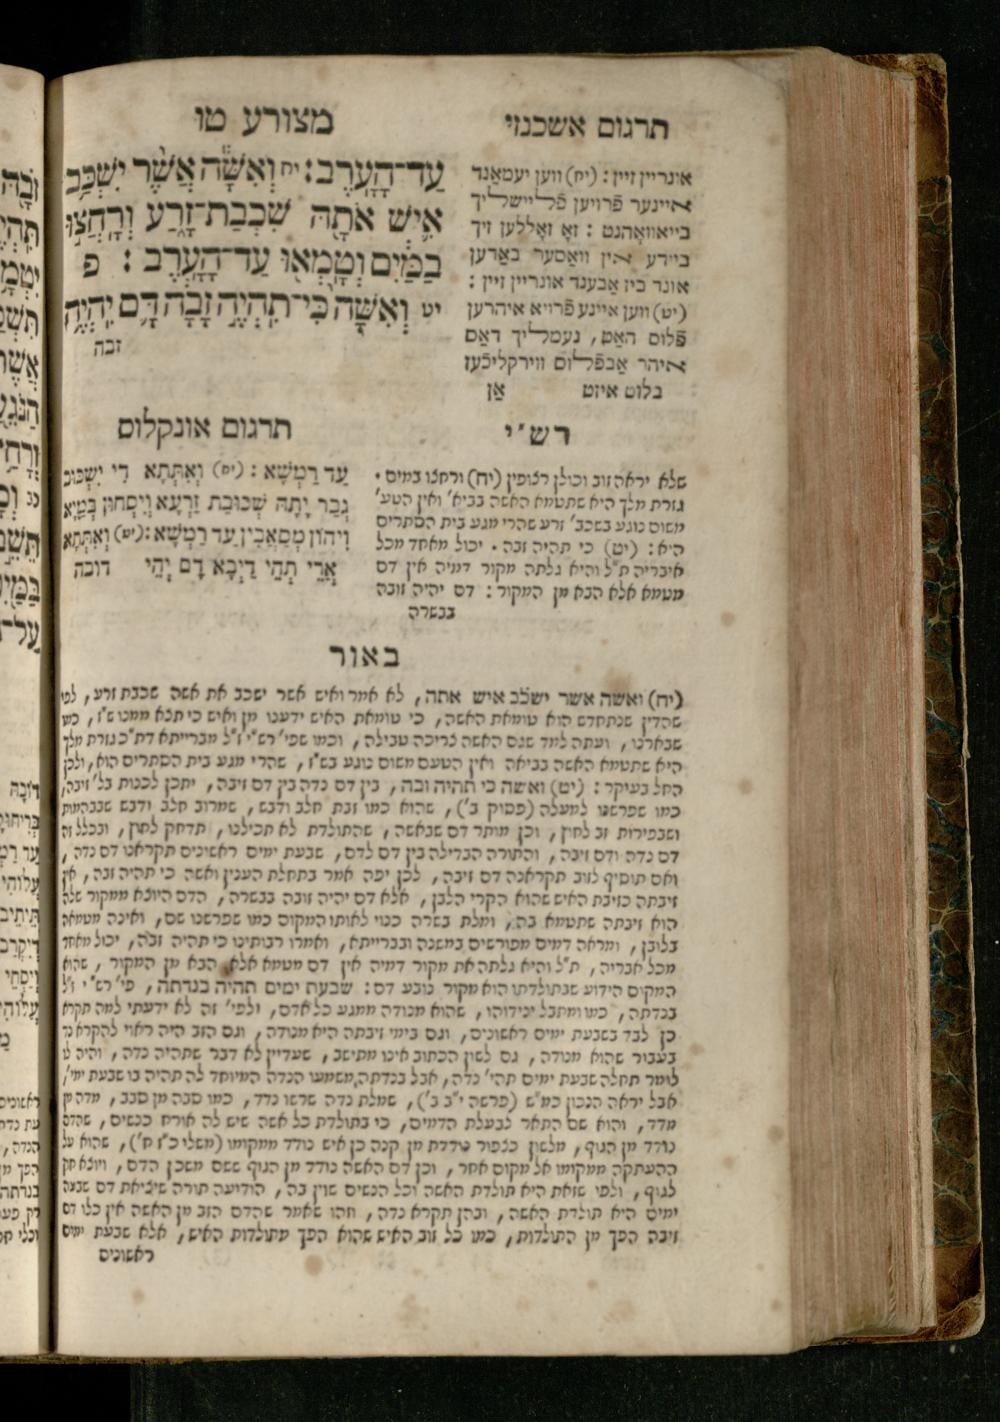 מצורע טו
תרגום אשכנזי
עַד־הָעָרֶב: יח וְאִשָּׁה אֲשֶׁר יִשְׁכַּב
אִישׁ אֹתָהּ שִׁכְבַת־זָרַע וְרָחֲצוּ
בַמַּיִם וְטָמְאוּ עַד־הָעָרֶב : פ
יט וְאִשָּׁה כִּי־תִהְיֶה זָבָה דָּם יִהְיֶה
זבה
אונריין זיין : (יח) ווען יעמאַנד
איינער פֿרויען פֿליישליך
בייאוואָהנט : זאָ זאָללען זיך
ביידע אין וואַסער באַדען
אונד ביז אַבענד אונריין זיין :
(יט) ווען איינע פֿרויא איהרען
פֿלוס האַט, נעמליך דאַס
איהר אַבפֿלוס ווירקליכֿעז
בלוט איזט אַן
רש״י
שלא יראה זוב וכולן רצופין (יח) ורחצו במים •
גזרת מלך היא שתטמא האשה בביא׳ ואין הטע׳
משום נוגע בשכב׳ זרע שהרי מגע בית הסתרים
היא : (יט) כי תהיה זבה • יכול מאחד מכל
איבריה ת״ל והיא גלתה מקור דמיה אין דם
מטמא אלא הבא מן המקור : דם יהיה זובה
בבשרה
תרגום אונקלוס
עַד רַמְשָׁא : (יח) וְאִתְּתָא דִי יִשְׁכּוּב
גְבַר יָתַהּ שִׁכּוּבַת זַרְעָא וְיִסְחוּן בְּמַיָא
וִיהוֹן מְסַאֲבִין עַד רַמְשָׁא : (יט) וְאִתְּתָא
אֲרֵי תְהֵי דַיְבָא דָם יְהֵי דובה
באור
(יח) ואשה אשר ישכב איש אתה, לא אמר ואיש אשר ישכב את אשה שכבת זרע, לפי
שהדין שנתחדש הוא טומאת האשה, כי טומאת האיש ידענו מן ואיש כי תצא ממנו ש״ז, כמו
שבארנו, ועתה למד שגם האשה צריכה טבילה, וכמו שפי׳ רש״י ז״ל מברייתא דת״כ גזרת מלך
היא שתטמא האשה בביאה ואין הטעם משום נוגע בש״ז, שהרי מגע בית הסתרים הוא, ולכן
החל בעיקר : (יט) ואשה כי תהיה זבה, בין דם נדה בין דם זיבה, יתכן לכנות בל׳ זיבה,
כמו שפרשנו למעלה (פסוק ב׳), שהוא כמו זבת חלב ודבש, שמרוב חלב ודבש שבבהמות
ושבפירות זב לחוץ, וכן מותר דם שבאשה, שהתולדת לא תכילנו, תדחק לחוץ, ובכלל זה
דם נדה ודם זיבה, והתורה הבדילה בין דם לדם, שבעת ימים ראשונים תקראנו דם נדה,
ואם תוסיף לזוב תקראנה דם זיבה, לכן יפה אמר בתחלת הענין ואשה כי תהיה זבה, אין
זיבתה כזיבת האיש שהוא הקרי הלבן, אלא דם יהיה זובה בבשרה, הדם היוצא ממקור שלה
הוא זיבתה שתטמא בה, ומלת בשרה כנוי לאותו המקום כמו שפרשנו שם, ואינה מטמאה
בלובן, ומראה דמים מפורשים במשנה ובברייתא, ואמרו רבותינו כי תהיה זבה, יכול מאחד
מכל אבריה, ת״ל והיא גלתה את מקור דמיה אין דם מטמא אלא הבא מן המקור, שהוא
המקום הידוע שבתולדתו הוא מקור נובע דם : שבעת ימים תהיה בנדתה, פי׳ רש״י ז״ל
בנדתה, כמו ומתבל ינידוהו, שהוא מנודה ממגע כל אדם, ולפי׳ זה לא ידעתי למה תקרא
כן לבד בשבעת ימים ראשונים, וגם בימי זיבתה היא מנודה, וגם הזב היה ראוי להקרא נד
בעבור שהוא מנודה, גם לשון הכתוב אינו מתישב, שעדיין לא דבר שתהיה נדה, והיה לו
לומר תחלה שבעת ימים תהי׳ נדה, אבל בנדתה משמעו הנדה המיוחד לה תהיה בו שבעת ימי׳,
אבל יראה הנכון כמ״ש (פרשה י״ב ב׳), שמלת נדה שרשו נדד, כמו סבה מן סבב, מדה מן
מדד, והוא שם התאר לבעלת הדמים, כי בתולדת כל אשה שיש לה אורח כנשים, שהדם
נודד מן הגוף, מלשון כצפור נודדת מן קנה כן איש נודד ממקומו (משלי כ״ז ח׳), שהוא על
ההעתקה ממקומו אל מקום אחר, וכן דם האשה נודד מן הגוף ששם משכן הדם, ויוצא חוץ
לגוף, ולפי שזאת היא תולדת האשה וכל הנשים שוין בה, הודיעה תורה שיציאת דם שבעה
ימים היא תולדת האשה, ובהן תקרא נדה, וזהו שאמר שהדם הזב מן האשה אין כלו דם
זיבה הפך מן התולדות, כמו כל זוב האיש שהוא הפך מתולדות האיש, אלא שבעת ימים
ראשונים